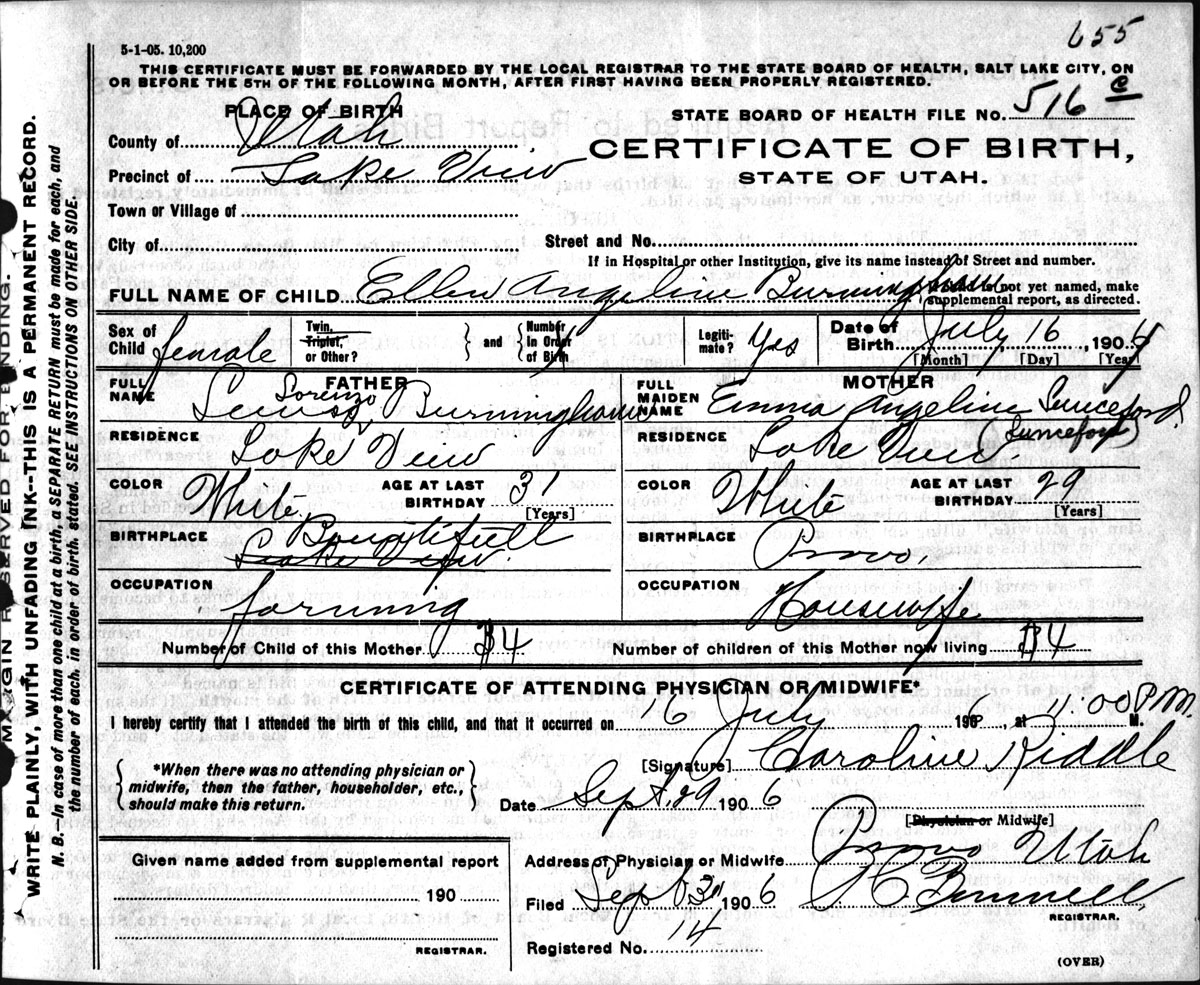 655
5-1-05. 10,200
THIS CERTIFICATE MUST BE FORWARDED BY THE LOCAL REGISTRAR TO THE STATE BOARD OF HEALTH, SALT LAKE CITY, ON
OR BEFORE THE 5TH OF THE FOLLOWING MONTH, AFTER FIRST HAVING BEEN PROPERLY REGISTERED.
PLACE OF BIRTH
STATE BOARD OF HEALTH FILE NO. 516 c
County of Utah
CERTIFICATE OF BIRTH,
Precinct of Lake View
STATE OF UTAH.
Town or Village of
City of Street and No.
If in Hospital or other Institution, give its name instead of Street and number.
FULL NAME OF CHILD Ellen Angeline Burningham
child is not yet named, make
supplemental report, as directed.
Sex of Child female
Twin, Triplet, or Other? } and { Number In Order of Birth
Legiti-mate? Yes
Date of Birth July 16 1904
[Month] [Day] [Year]
FATHER
FULL NAME Lorenzo Burningham
MOTHER
FULL MAIDEN NAME Emma Angeline
RESIDENCE Lake View
RESIDENCE Lake View
COLOR White AGE AT LAST BIRTHDAY 31 [Years]
COLOR White AGE AT LAST BIRTHDAY 29 [Years]
BIRTHPLACE Bountifull
Lake View
BIRTHPLACE Provo.
OCCUPATION farming
OCCUPATION Housewife
Number of Child of this Mother 4
Number of children of this Mother now living 4
CERTIFICATE OF ATTENDING PHYSICIAN OR MIDWIFE*
I hereby certify that I attended the birth of this child, and that it occurred on 16 July 190 , at 11.00 P.M. M.
{ *When there was no attending physician or midwife, then the father, householder, etc., should make this return. }
[Signature] Caroline Riddle
Date Sept. 29 1906
[Physician or Midwife]
Given name added from supplemental report
190
REGISTRAR.
Address of Physician or Midwife Provo Utah
Filed Sep 1906
REGISTRAR.
Registered No. 14
(OVER)
MARGIN RESERVED FOR BINDING.
WRITE PLAINLY, WITH UNFADING INK--THIS IS A PERMANENT RECORD.
N. B.—In case of more than one child at a birth, a SEPARATE RETURN must be made for each, and
the number of each, in order of birth, stated. SEE INSTRUCTIONS ON OTHER SIDE.